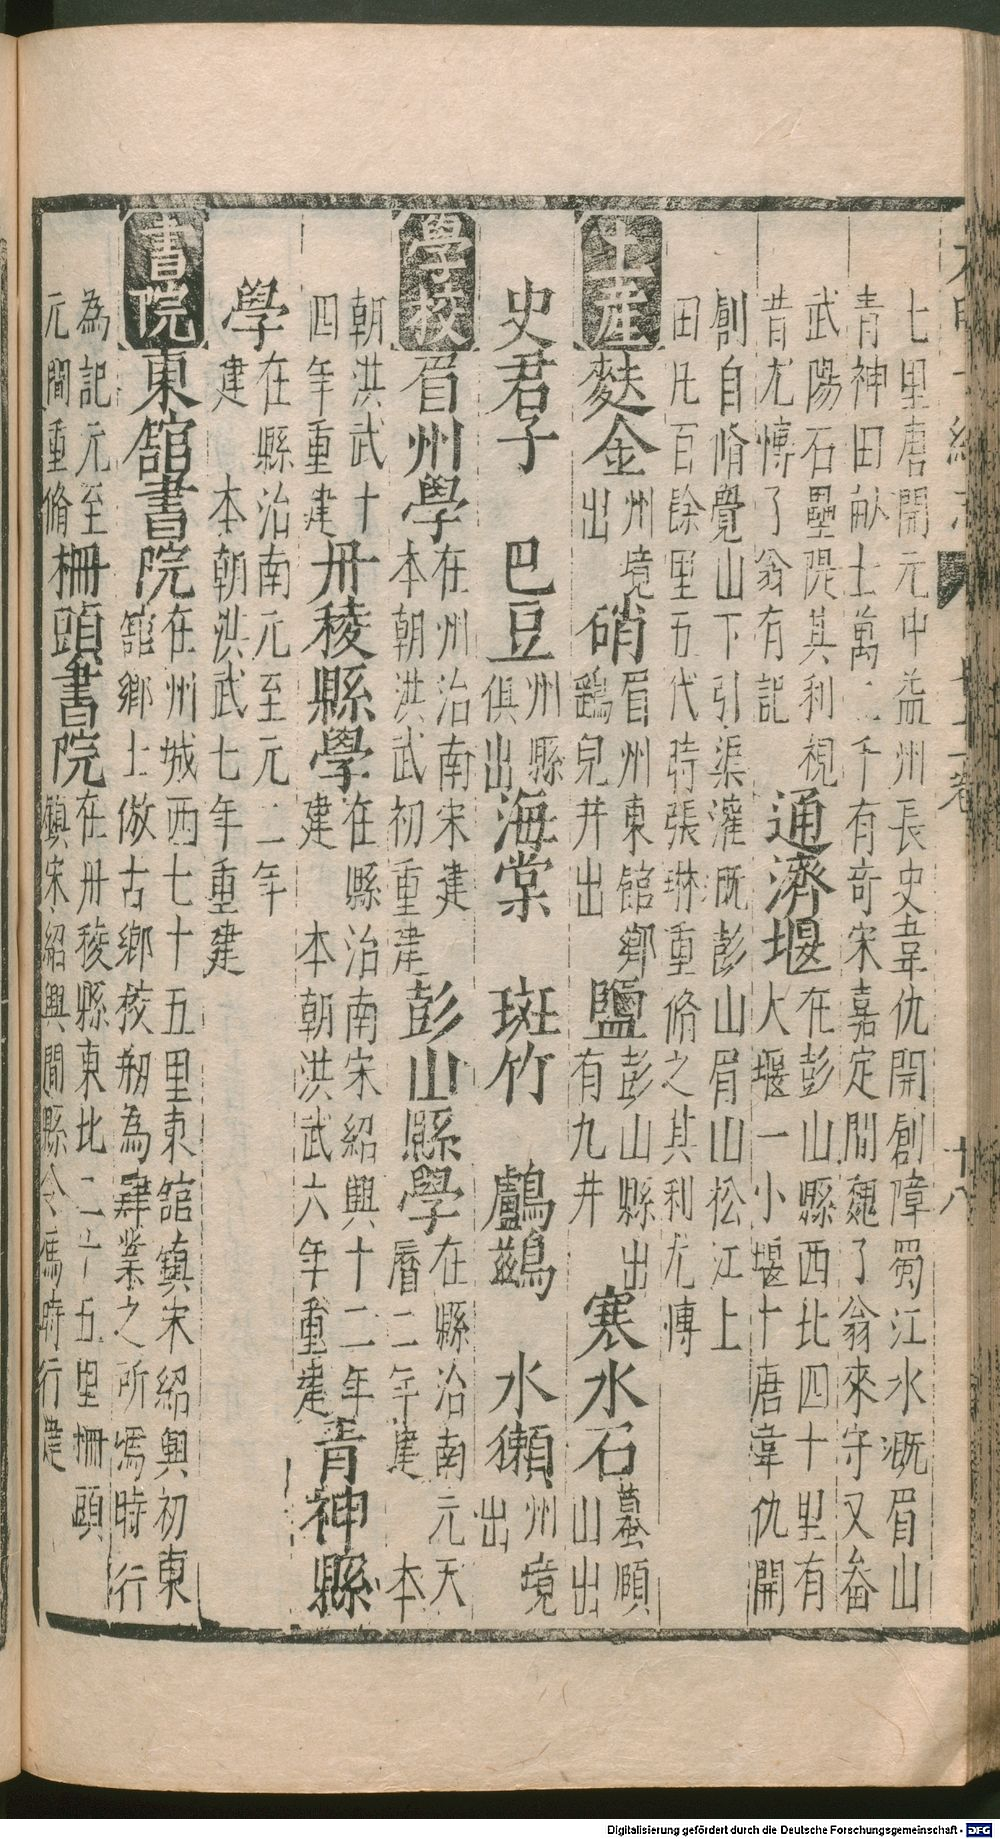 七里唐開元中益州長史章仇開創障蜀江水溉眉山
青神田畝土萬二千有奇宋嘉定間魏了翁來守又畚
武陽石壘隄其利視
通濟堰
在彭山縣西北四十里有
大堰一小堰十唐章仇開
昔尤愽了翁有記
創自脩覺山下引渠灌溉彭山眉山松江上
田凡百餘里五代時張琳重脩之其利尤愽
土産
麩金
州境
出
硝
眉州東館鄉
鷄兒井出
鹽
彭山縣出
有九井
寒水石
蟇頤
山出
史君子
巴豆
州縣
俱出
海棠
斑竹
鸕鷀
水獺
州境
出
學校
眉州學
在州治南宋建
本朝洪武初重建
彭山縣學
在縣治南元天
曆二年建 本
朝洪武十
四年重建
丹稜縣學
在縣治南宋紹興十二年
建 本朝洪武六年重建
青神縣
學
在縣治南元至元二年
建 本朝洪武七年重建
書院
東舘書院
在州城西七十五里東舘鎮宋紹興初東
舘鄉士倣古鄉校剏為肄業之所馮時行
為記元至
元間重脩
柵頭書院
在丹稜縣東北二十五里柵頭
鎮宋紹興間縣令馮時行建
十八
Digitalisierung gefördert durch die Deutsche Forschungsgemeinschaft - DFG